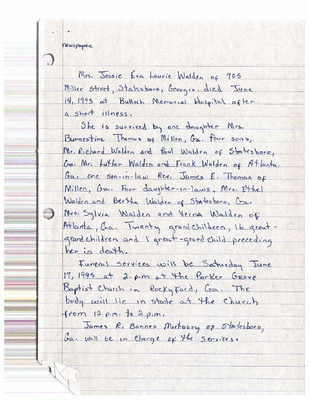 newspaper
Mrs. Jessie Eva Laurie Walden of 705
Miller Street, Statesboro, Georgia. died June
14, 1995 at Bulloch Memorial Hospital after
a short illness.
She is survived by one daughter Mrs.
Burnestine Thomas of Millen, Ga. four sons,
Mr. Richard Walden and Paul Walden of Statesboro,
Ga. Mr. Luther Walden and Frank Walden of Atlanta,
Ga. one son-in-law Rev. James E. Thomas of
Millen, Ga. Four daughter-in-laws, Mrs. Ethel
Walden and Bertha Walden of Statesboro, Ga.
Mrs. Sylvia Walden and Verna Walden of
Atlanta, Ga. Twenty grandchildren, 16 great-
grandchildren and 1 great-grandchild preceding
her in death.
Funeral services will be Saturday June
17, 1995 at 2:p.m at the Parker Grove
Baptist Church in Rocky Ford, Ga. The
body will lie in state at the church
from 12 p.m. to 2.p.m.
James R. Barnes Mortuary of Statesboro,
Ga. will be in charge of the services.